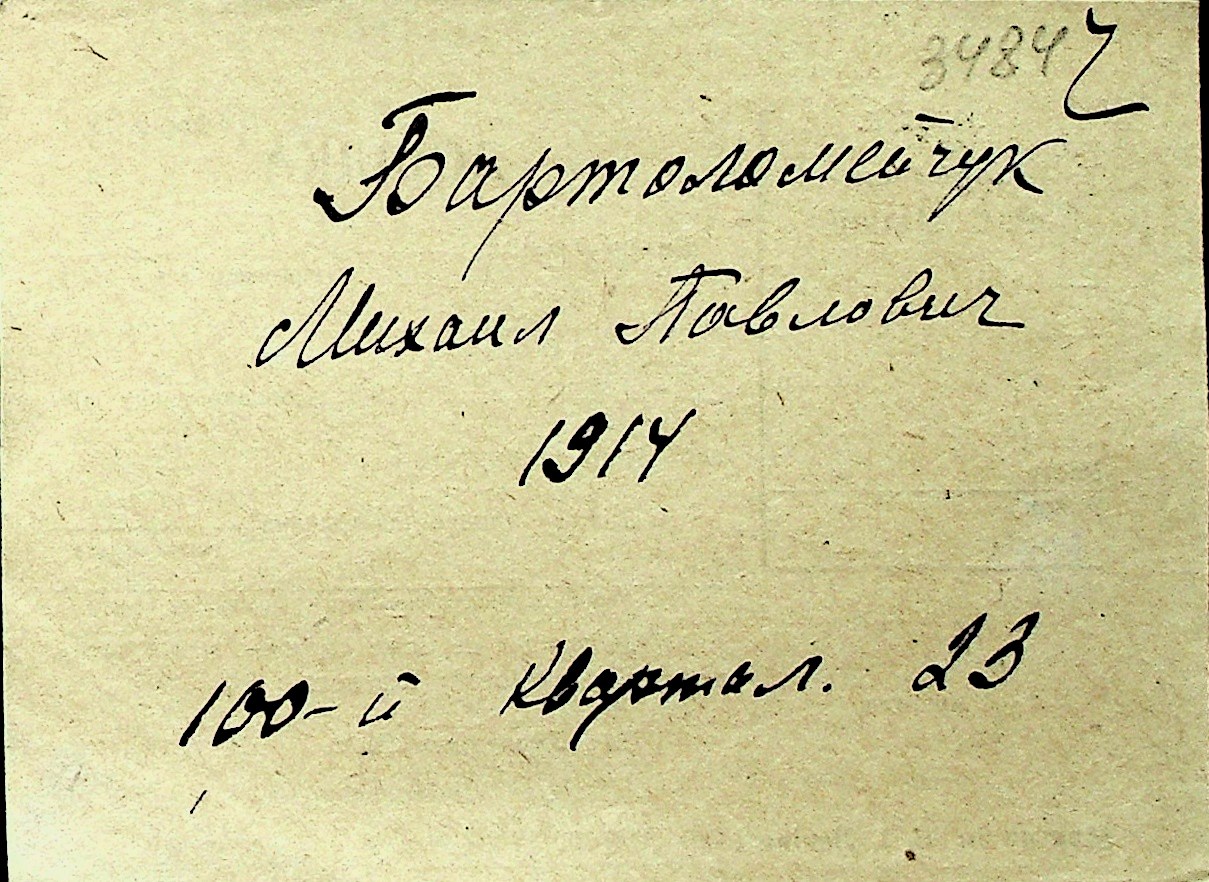 3484
Бартоломейчук
Михаил Павлович
1914
100-й квартал. 23